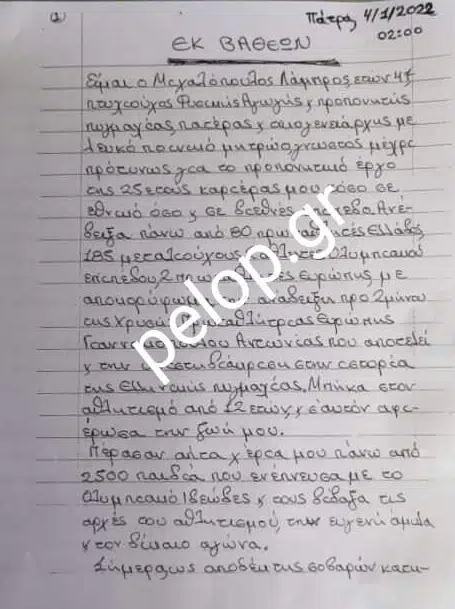 (1)
Πάτρα 4/1/2022
02:00
ΕΚ ΒΑΘΕΩΝ
Είμαι ο Μεγαλόπουλος Λάμπρος ετών 47
πτυχιούχος Φυσικής Αγωγής & προπονητής
πυγμαχίας, πατέρας & οικογενειάρχης με
λευκό ποινικό μητρώο, γνωστός μέχρι
πρότινος για το προπονητικό έργο
της 25ετούς καριέρας μου τόσο σε
εθνικό όσο & σε διεθνές επίπεδο. Ανέ-
δειξα πάνω από 80 Ελλάδος,
185 μεταλιούχους, Ολυμπιακού
επιπέδου, 2 Ευρώπης με
αποκορύφωμα ανάδειξη προ 2μήνου
της Χρυσής Πρωταθλήτριας Ευρώπης
Γιαννακοπούλου Αντωνίας που αποτελεί
& την στην ιστορία
της Ελληνικής πυγμαχίας. Μπήκα στον
αθλητισμό από 12 ετών & σ'αυτόν αφι-
έρωσα την ζωή μου.
Πέρασαν από τα χέρια μου πάνω από
2500 παιδιά που ενέπνευσα με το
Ολυμπιακό Ιδεώδες & τους δίδαξα τις
αρχές του αθλητισμού, την ευγενή άμιλλα
& τον δίκαιο αγώνα.
Σήμερα ως αποδέκτης σοβαρών κατη-
pelop.gr